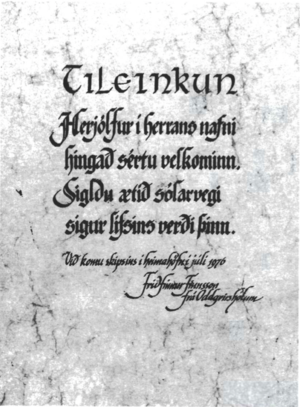 TILEINKUN
Herjólfur í herrans nafni
hingað sértu velkominn.
Sigldu ætíð sólarvegi
sigur lífsins verði þinn.
Við komu skipsins í heimahöfn í júlí 1976
Friðfinnur Finnsson
frá Oddgeirshólum